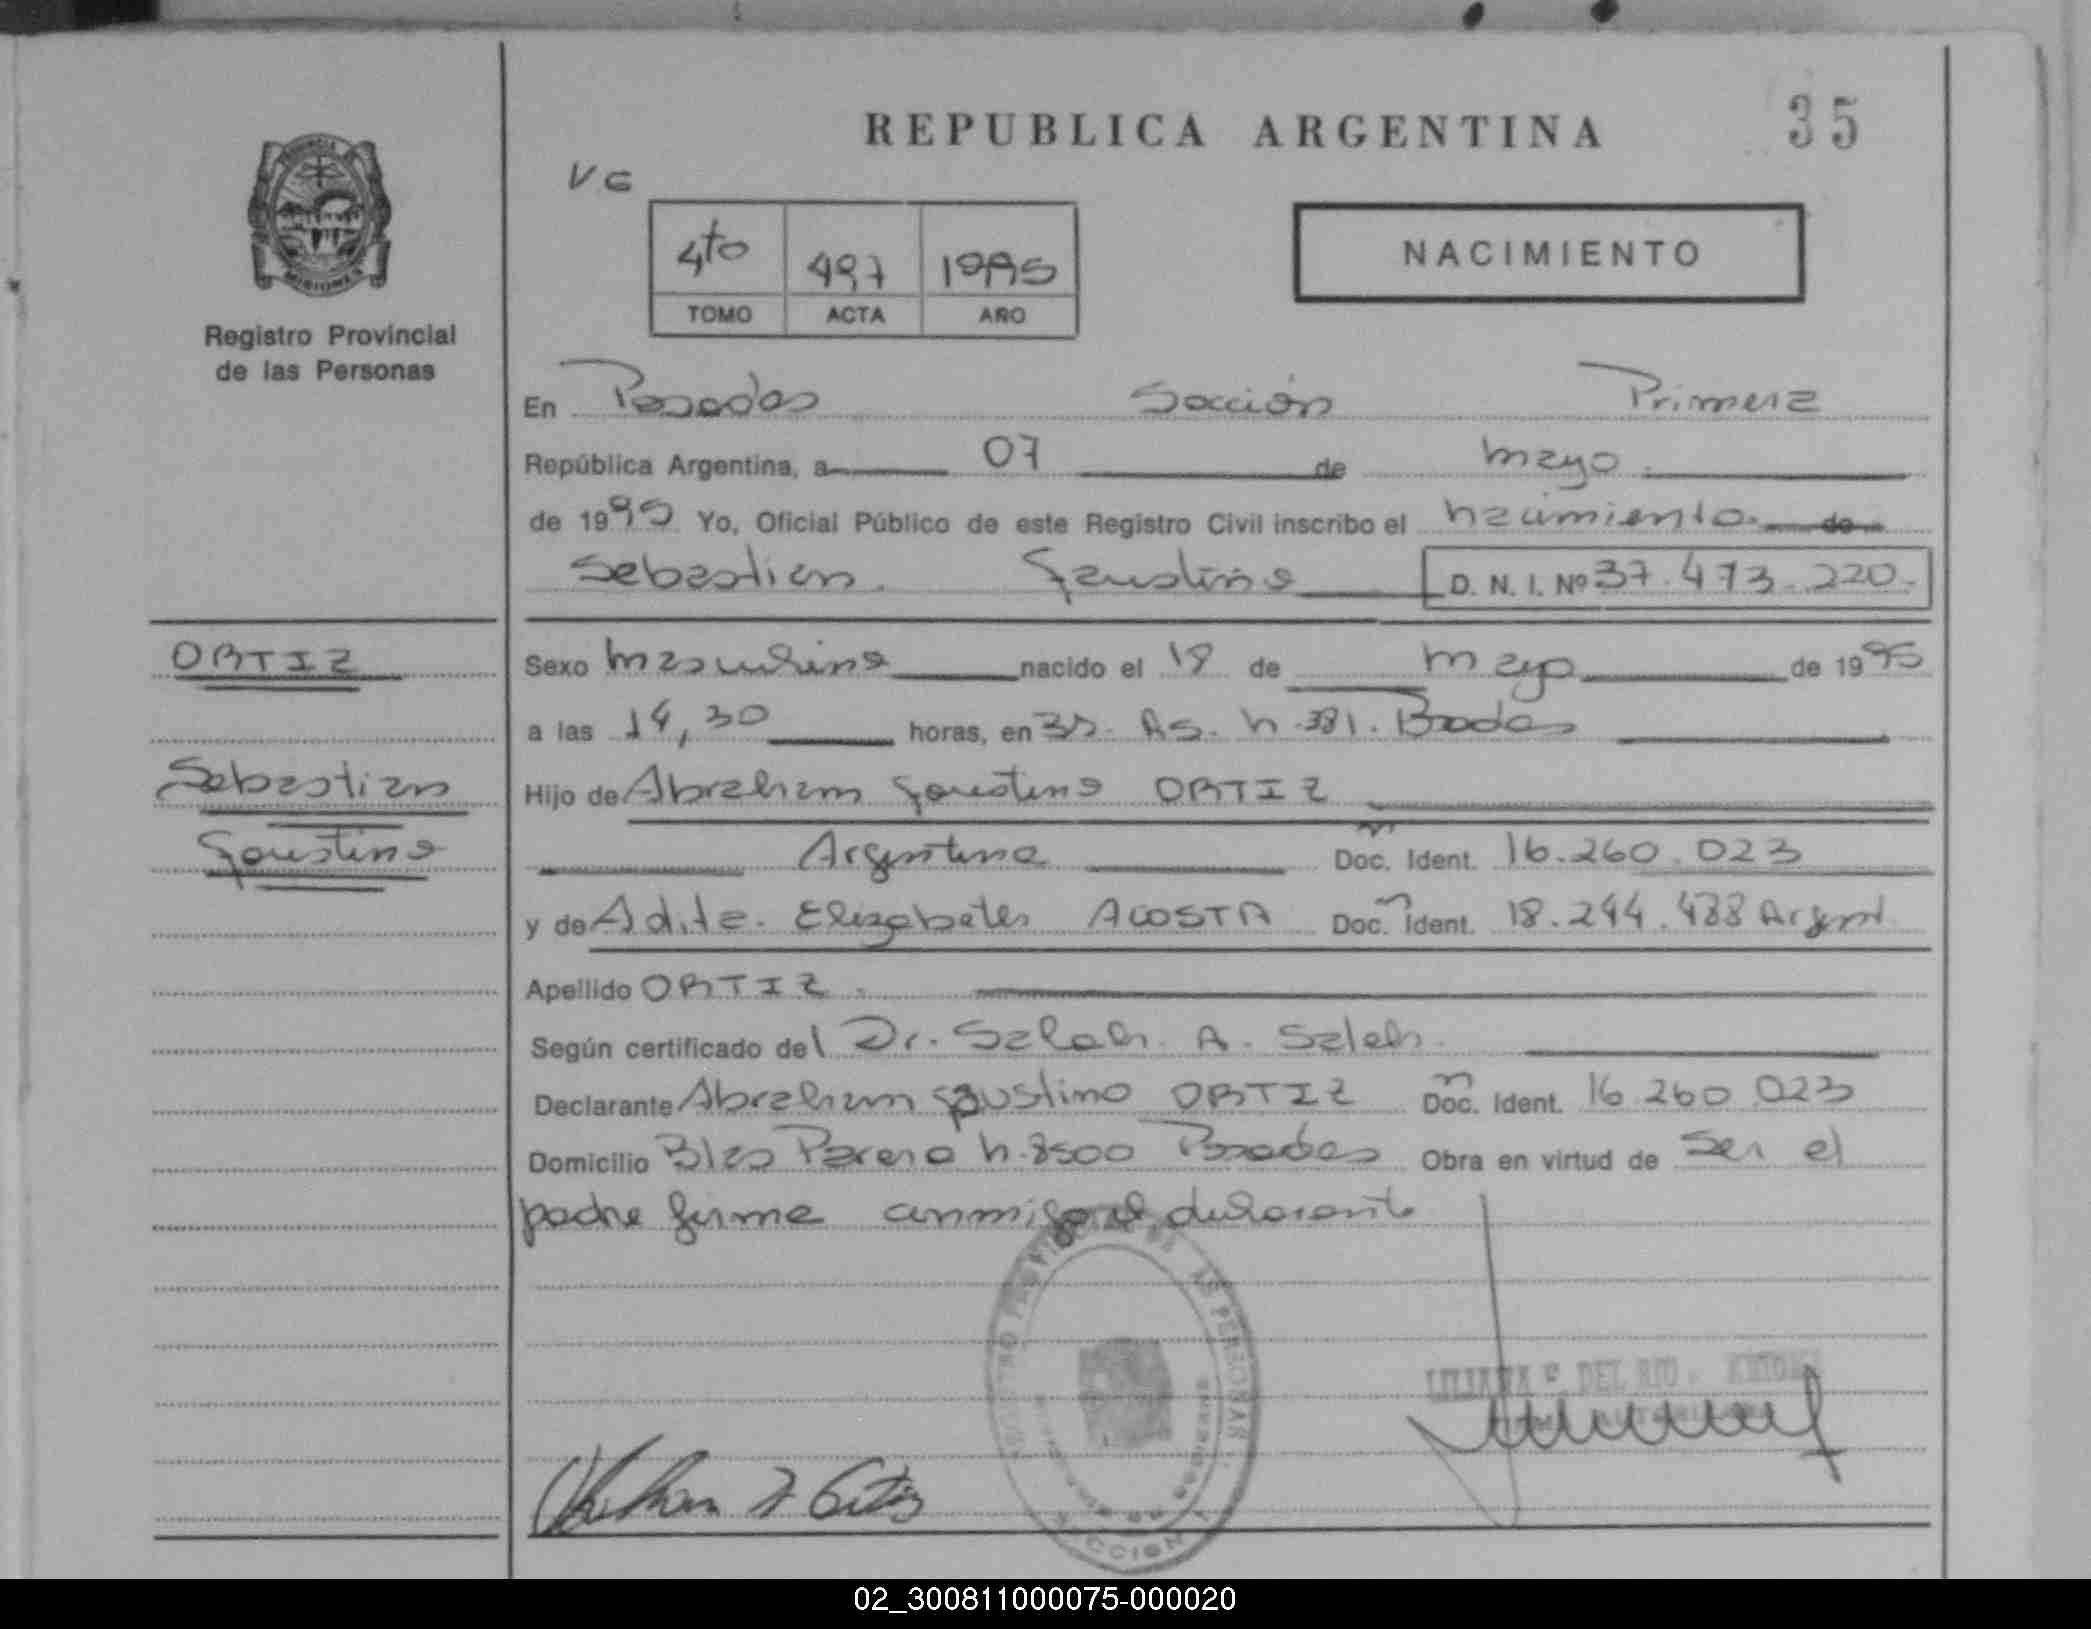 REPUBLICA ARGENTINA
35
VG
4to 497 1995
TOMO ACTA AÑO
NACIMIENTO
MISIONES
Registro Provincial
de las Personas
En Posadas Sección Primera
República Argentina, a 07 de mayo
de 1995 Yo, Oficial Público de este Registro Civil inscribo el nacimiento de
Sebastian Faustino D. N. I. Nº 37.473.220.
ORTIZ
Sexo masculino nacido el de mayo de 1995
a las 14,30 horas, en As. n. 381. Posadas
Sebastian
Hijo de Abraham Faustino ORTIZ
Faustino
Argentina Doc. Ident. 16.260.023
y de Elizabeth ACOSTA Doc. Ident. 18.244.488 Argent
Apellido ORTIZ.
Según certificado del Dr. Salah A. Saleh.
Declarante Abraham Faustino ORTIZ Doc. Ident. 16.260.023
Domicilio Blas Parera n. Posadas Obra en virtud de Ser el
padre firma conmigo el declarante
LILIANA DEL RIO
SECCION
02_300811000075-000020